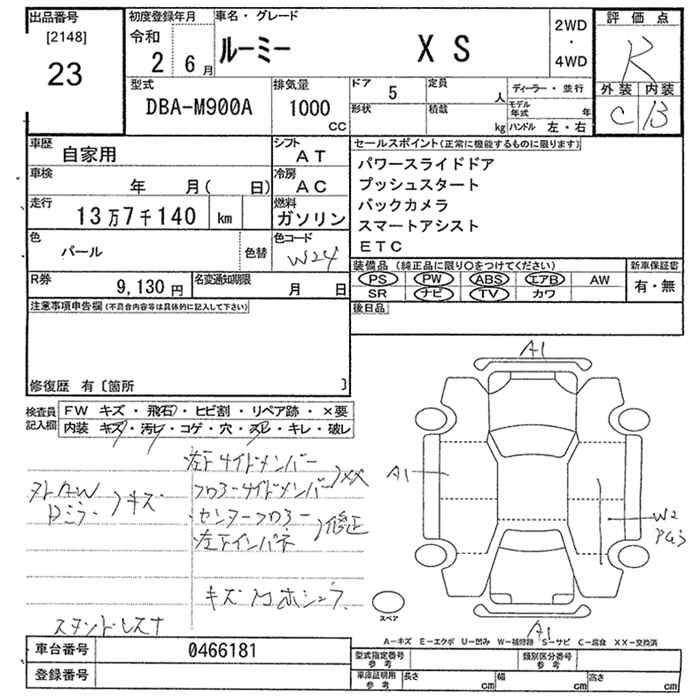 出品番号
[2148]
23
初度登録年月
令和
2 6月
車名・グレード
ルーミー X S
2WD
・
4WD
評価点
R
外装 内装
C B
型式
DBA-M900A
排気量
1000
CC
ドア 5
定員 人
ディーラー・並行
形状
積載 kg
モデル年式 年
ハンドル 左・右
車歴
自家用
シフト
AT
車検
年 月( 日)
冷房
AC
走行
13万7千140 km
燃料
ガソリン
色
パール
色替
色コード
W24
R券 9,130円
名変通知期限
月 日
セールスポイント(正常に機能するものに限ります)
パワースライドドア
プッシュスタート
バックカメラ
スマートアシスト
ETC
装備品(純正品に限り○をつけてください)
PS PW ABS エアB AW
SR ナビ TV カワ
新車保証書
有・無
後日品
注意事項申告欄(不具合内容等は具体的に記入して下さい)
修復歴 有 [箇所 ]
検査員記入欄
FW キズ・飛石・ヒビ割・リペア跡・×要
内装 キズ・汚レ・コゲ・穴・スレ・キレ・破レ
左下サイドメンバー
フロアーサイドメンバー XX
センターフロアー
左下インパネ 修正
Dミラー キズ
キズ
スタンドレスキ
A1
A1
W2
A1
スペア
A-キズ E-エクボ U-凹み W-補修跡 S-サビ C-腐食 XX-交換済
車台番号 0466181
登録番号
型式指定番号参考
類別区分番号参考
車庫証明用参考
長さ cm
幅 cm
高さ cm